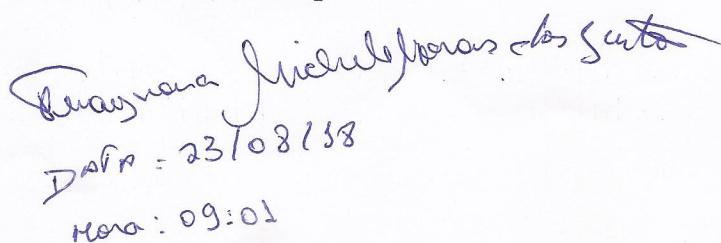 Michele Morais dos Santos
DATA = 23/08/18
Hora: 09:01